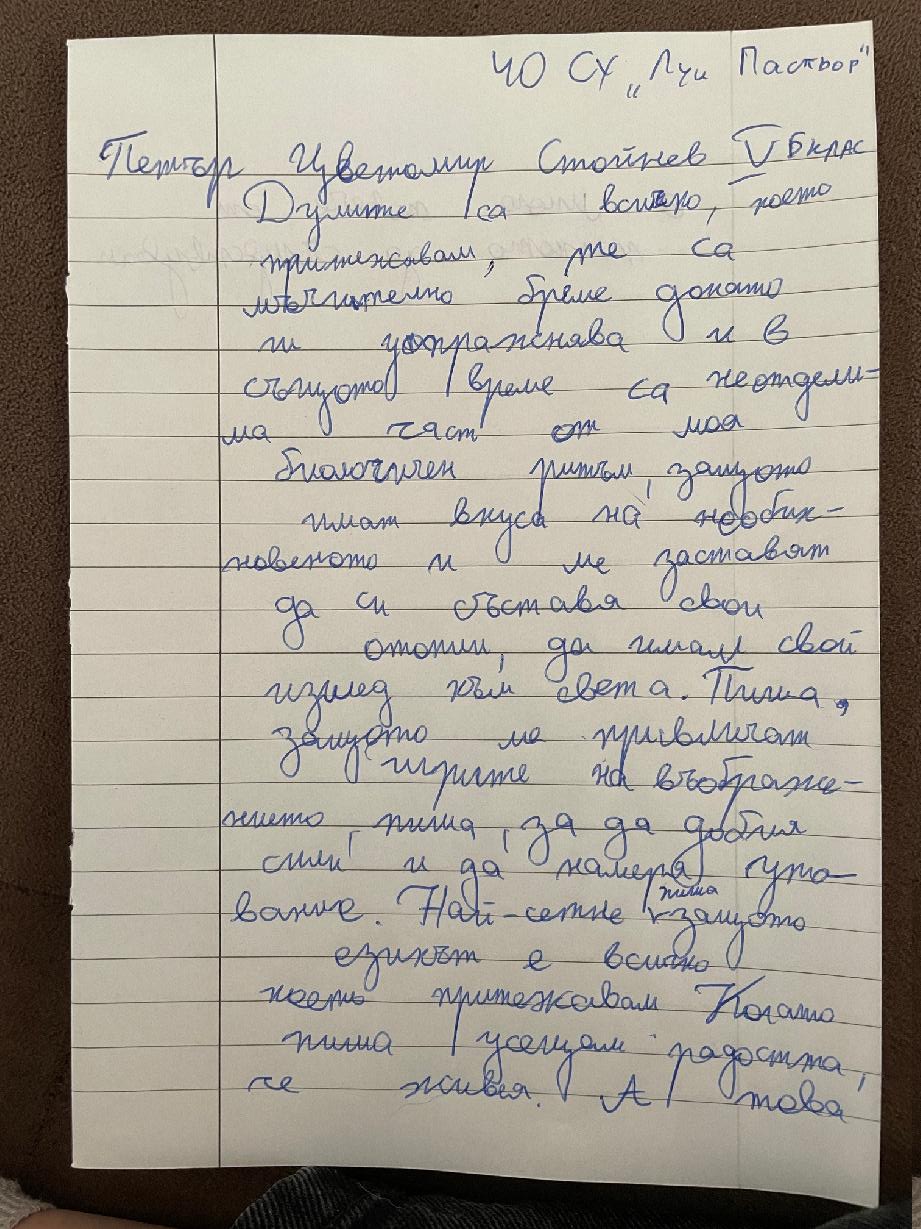 ЧО СУ „Луи Пастьор"
Петър Цветомир Стойнев V Б клас
Думите са всичко, което
притежавам, те са
мъчително бреме докато
ги упражнява и в
същото време са неотдели-
ма част от моя
биологичен ритъм, защото
имат вкуса на необик-
новеното и ме заставят
да си съставя свои
да имам свой
изглед към света. Пиша,
защото ме привличат
игрите на въображе-
нието, пиша, за да добия
сили и да намеря упо-
вание. Най-сетне пиша защото
езикът е всичко
което притежавам Когато
пиша усещам радостта,
че живея. А това